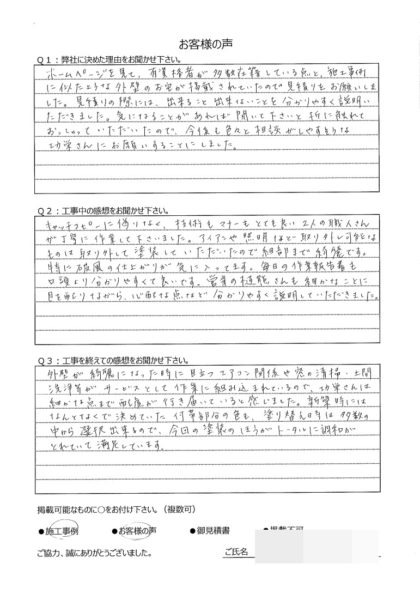 お客様の声
Q1：弊社に決めた理由をお聞かせ下さい。
ホームページを見て、有資格者が多数在籍している点と、施工事例
に似たような外壁のお宅が掲載されていたので見積りをお願いしま
した。見積りの際には、出来ること出来ないことを分かりやすく説明い
ただきました。気になることがあれば聞いて下さいと折に触れて
おっしゃっていただいたので、今後も色々と相談がしやすそうな
功栄さんにお願いすることにしました。
Q2：工事中の感想をお聞かせ下さい。
キャッチコピーに偽りなく、技術もマナーもとても良い2人の職人さん
が丁寧に作業して下さいました。アイアンや照明など取り外し可能な
ものは取り外して塗装していただいたので細部まで綺麗です。
特に破風の仕上がりが気に入ってます。毎日の作業報告書も
口頭より分かりやすくて良いです。営業の さんも細かなことに
目を配りながら、心配な点など分かりやすく説明していただきました。
Q3：工事を終えての感想をお聞かせ下さい。
外壁が綺麗になった時に目立つエアコン関係や窓の清掃、土間
洗浄等がサービスとして作業に組み込まれているので、功栄さんは
細かな点まで配慮が行き届いていると感じました。新築時には
なんとなくで決めていた付帯部分の色も、塗り替え時は多数の
中から選択出来るので、今回の塗装のほうがトータルに調和が
とれていて満足しています。
掲載可能なものに○をお付け下さい。（複数可）
●施工事例 ●お客様の声 ●御見積書 ●掲載不可
ご協力、誠にありがとうございました。 ご氏名